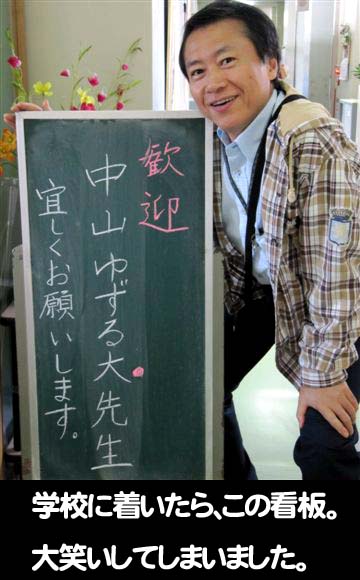 歓迎
中山ゆずる大先生
宜しくお願いします。
学校に着いたら、この看板。
大笑いしてしまいました。